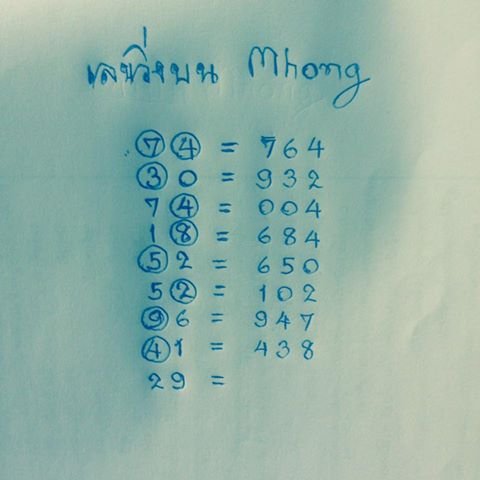 เลขวิ่งบน Mhong
7 4 = 764
3 0 = 932
7 4 = 004
1 8 = 684
5 2 = 650
5 2 = 102
9 6 = 947
4 1 = 438
29 =